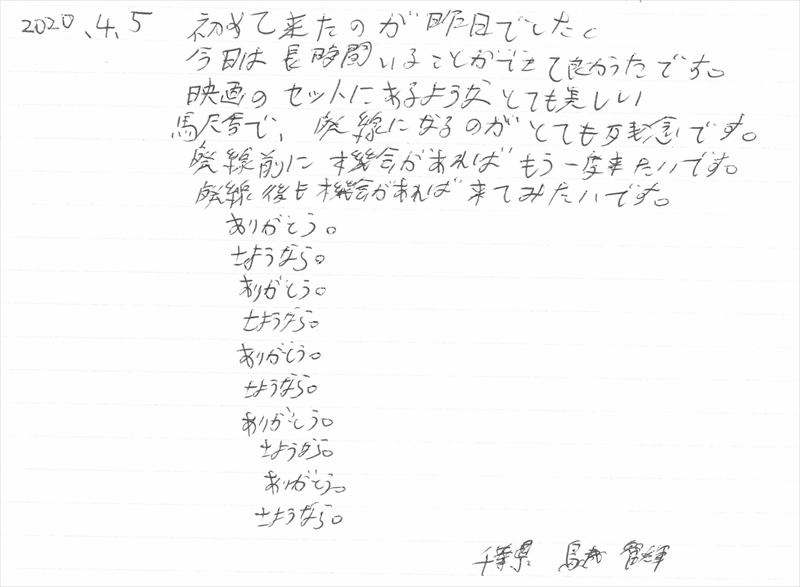 2020.4.5 初めて来たのが昨日でした。
今日は長時間いることができて良かったです。
映画のセットにあるようなとても美しい
駅舎で、廃線になるのがとても残念です。
廃線前に機会があればもう一度来たいです。
廃線後も機会があれば来てみたいです。
ありがとう。
さようなら。
ありがとう。
さようなら。
ありがとう。
さようなら。
ありがとう。
さようなら。
ありがとう。
さようなら。
千葉県